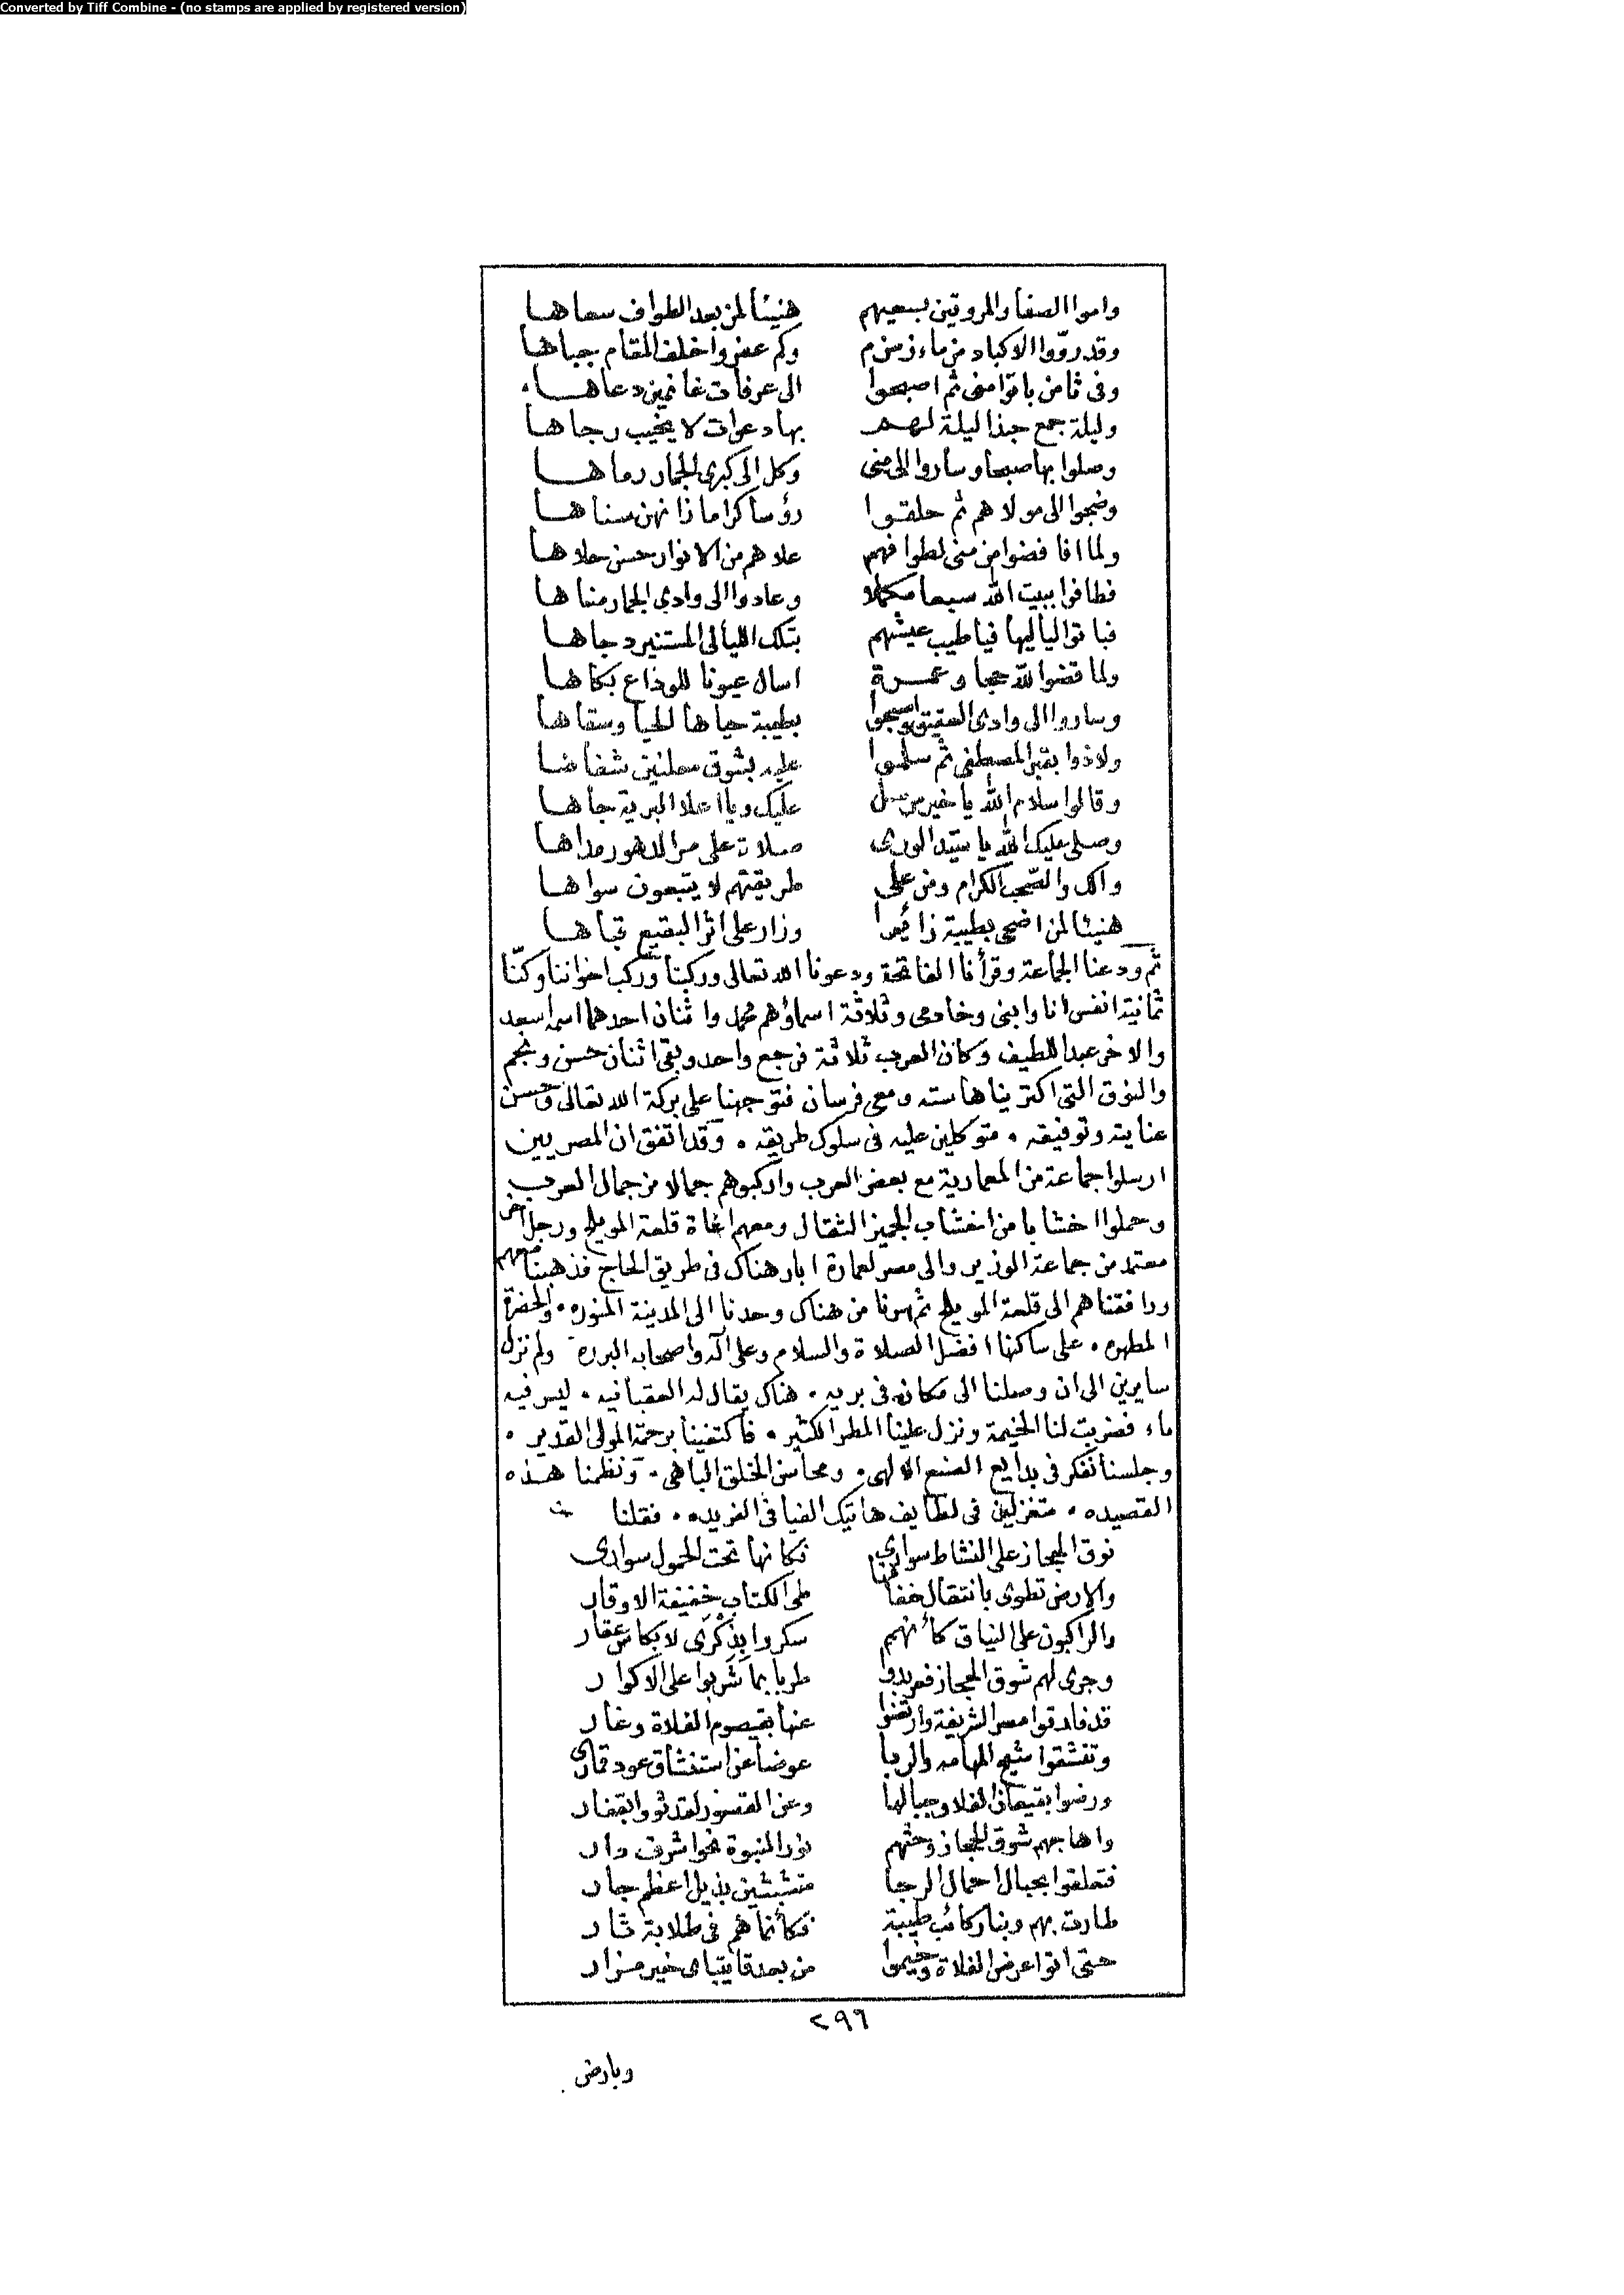 Converted by Tiff Combine - (no stamps are applied by registered version)
واموا الصفا والمروتين بسعيهم هنيئا لمن بعد الطواف سعاها
وقد روّوا الاكباد من ماء زمزم وكم عفروا خلف المقام جباها
وفى ثامن باتوا منى ثم اصبحوا الى عرفات غانمين دعاها
وليلة جمع حبذا ليلة لهم بها دعوات لا يخيب رجاها
وصلوا بها صبحا وساروا الى منى وكل الى كبرى الجمار رماها
وضجوا الى مولاهم ثم حلقوا رؤسا كراما ذانهن سناها
ولما افا فضوا من منى لطوافهم علاهم من الانوار حسن حلاها
فطافوا ببيت الله سبعا مكملا وعادوا الى وادى الجمار مناها
فباتوا لياليها فيا طيب عيشهم بتلك الليالى المستنير دجاها
ولما قضوا لله حجا وعمرة اسال عيونا للوداع بكاها
وساروا الى وادى العقيق واصبحوا بطيبة حياها الحيا وسقاها
ولاذوا بقبر المصطفى ثم سلموا عليه بشوق معلنين شفاها
وقالوا سلام الله يا خير مرسل عليك ويا اعلا البرية جاها
وصلى عليك الله يا سيّد الورى صلاة على مر الدهور مداها
وآلك والصّحب الكرام ومن على طريقتهم لا يتبعون سواها
هنيئا لمن اضحى بطيبة زائرا وزار على اثر البقيع قباها
ثم ودعنا الجماعة وقرأنا الفاتحة ودعونا الله تعالى وركبنا وركب اخواننا وكنّا
ثمانية انفس انا وابنى وخادمى وثلاثة اسماؤهم محمد واثنان احدهما اسمه اسعد
والاخر عبد اللطيف وكان العرب ثلاثة فرجع واحد وبقى اثنان حسن ونجم
والنوق التى اكتريناها سته ومعى فرسان فتوجهنا على بركة الله تعالى وحسن
عنايته وتوفيقه . متوكلين عليه فى سلوك طريقه . وقد اتفق ان المصريين
ارسلوا جماعة من المعمارية مع بعض العرب واركبوهم جمالا من جمال العرب
وحملوا اخشابا من اخشاب الجميز الثقال ومعهم اغاة قلعة المويلح ورجل اخر
معتمد من جماعة الوزير والى مصر لعمارة ابار هناك فى طريق الحاج فذهبنا معهم
ورافقناهم الى قلعة المويلح ثم سرنا من هناك وحدنا الى المدينة المنوره . والحضرة
المطهره . على ساكنها افضل الصلاة والسلام وعلى آله واصحابه البرره ولم نزل
سايرين الى ان وصلنا الى مكان فى بريه . هناك يقال له العقبانيه . ليس فيه
ماء فضربت لنا الخيمة ونزل علينا المطر الكثير . فاكتفينا برحمة المولى القدير .
وجلسنا نفكر فى بدايع الصنع الالهى . ومحاسن الخلق الباهى . ونظمنا هذه
القصيده . متغزلين فى لطايف هاتيك الفيافى الفريده . فقلنا
نوق الحجاز على النشاط سوارى فكانها تحت الحمول سوارى
والارض تطوى بانتقال خفافنا طى الكتاب خفيفة الاوقار
والراكبون على النياق كأنهم سكروا بذكرى لا بكاس عقار
وجرى لهم شوق الحجاز فعربدوا طربا بما شربوا على الاكوار
قد فارقوا مصر الشريفة وارتضوا عنها بقيصوم الفلاة وغار
وتنشقوا شيح المهامه والربا عوضا عن استنشاق عود قمارى
ورضوا بقيعان الفلا وجبالها وعن القصور لقد ثووا بقفار
واهاجهم شوق الحجاز وحثهم نور النبوة نحو اشرف دار
فتعلقوا بحبال احمال الرجا متشبثين بذيل اعظم جار
طارت بهم وبنا ركائب طيبة فكأنما هم فى طلابة ثار
حتى اتوا عرض الفلاة وخيموا من بعد قايتباى خير مزار
٢٩٦
وبارض